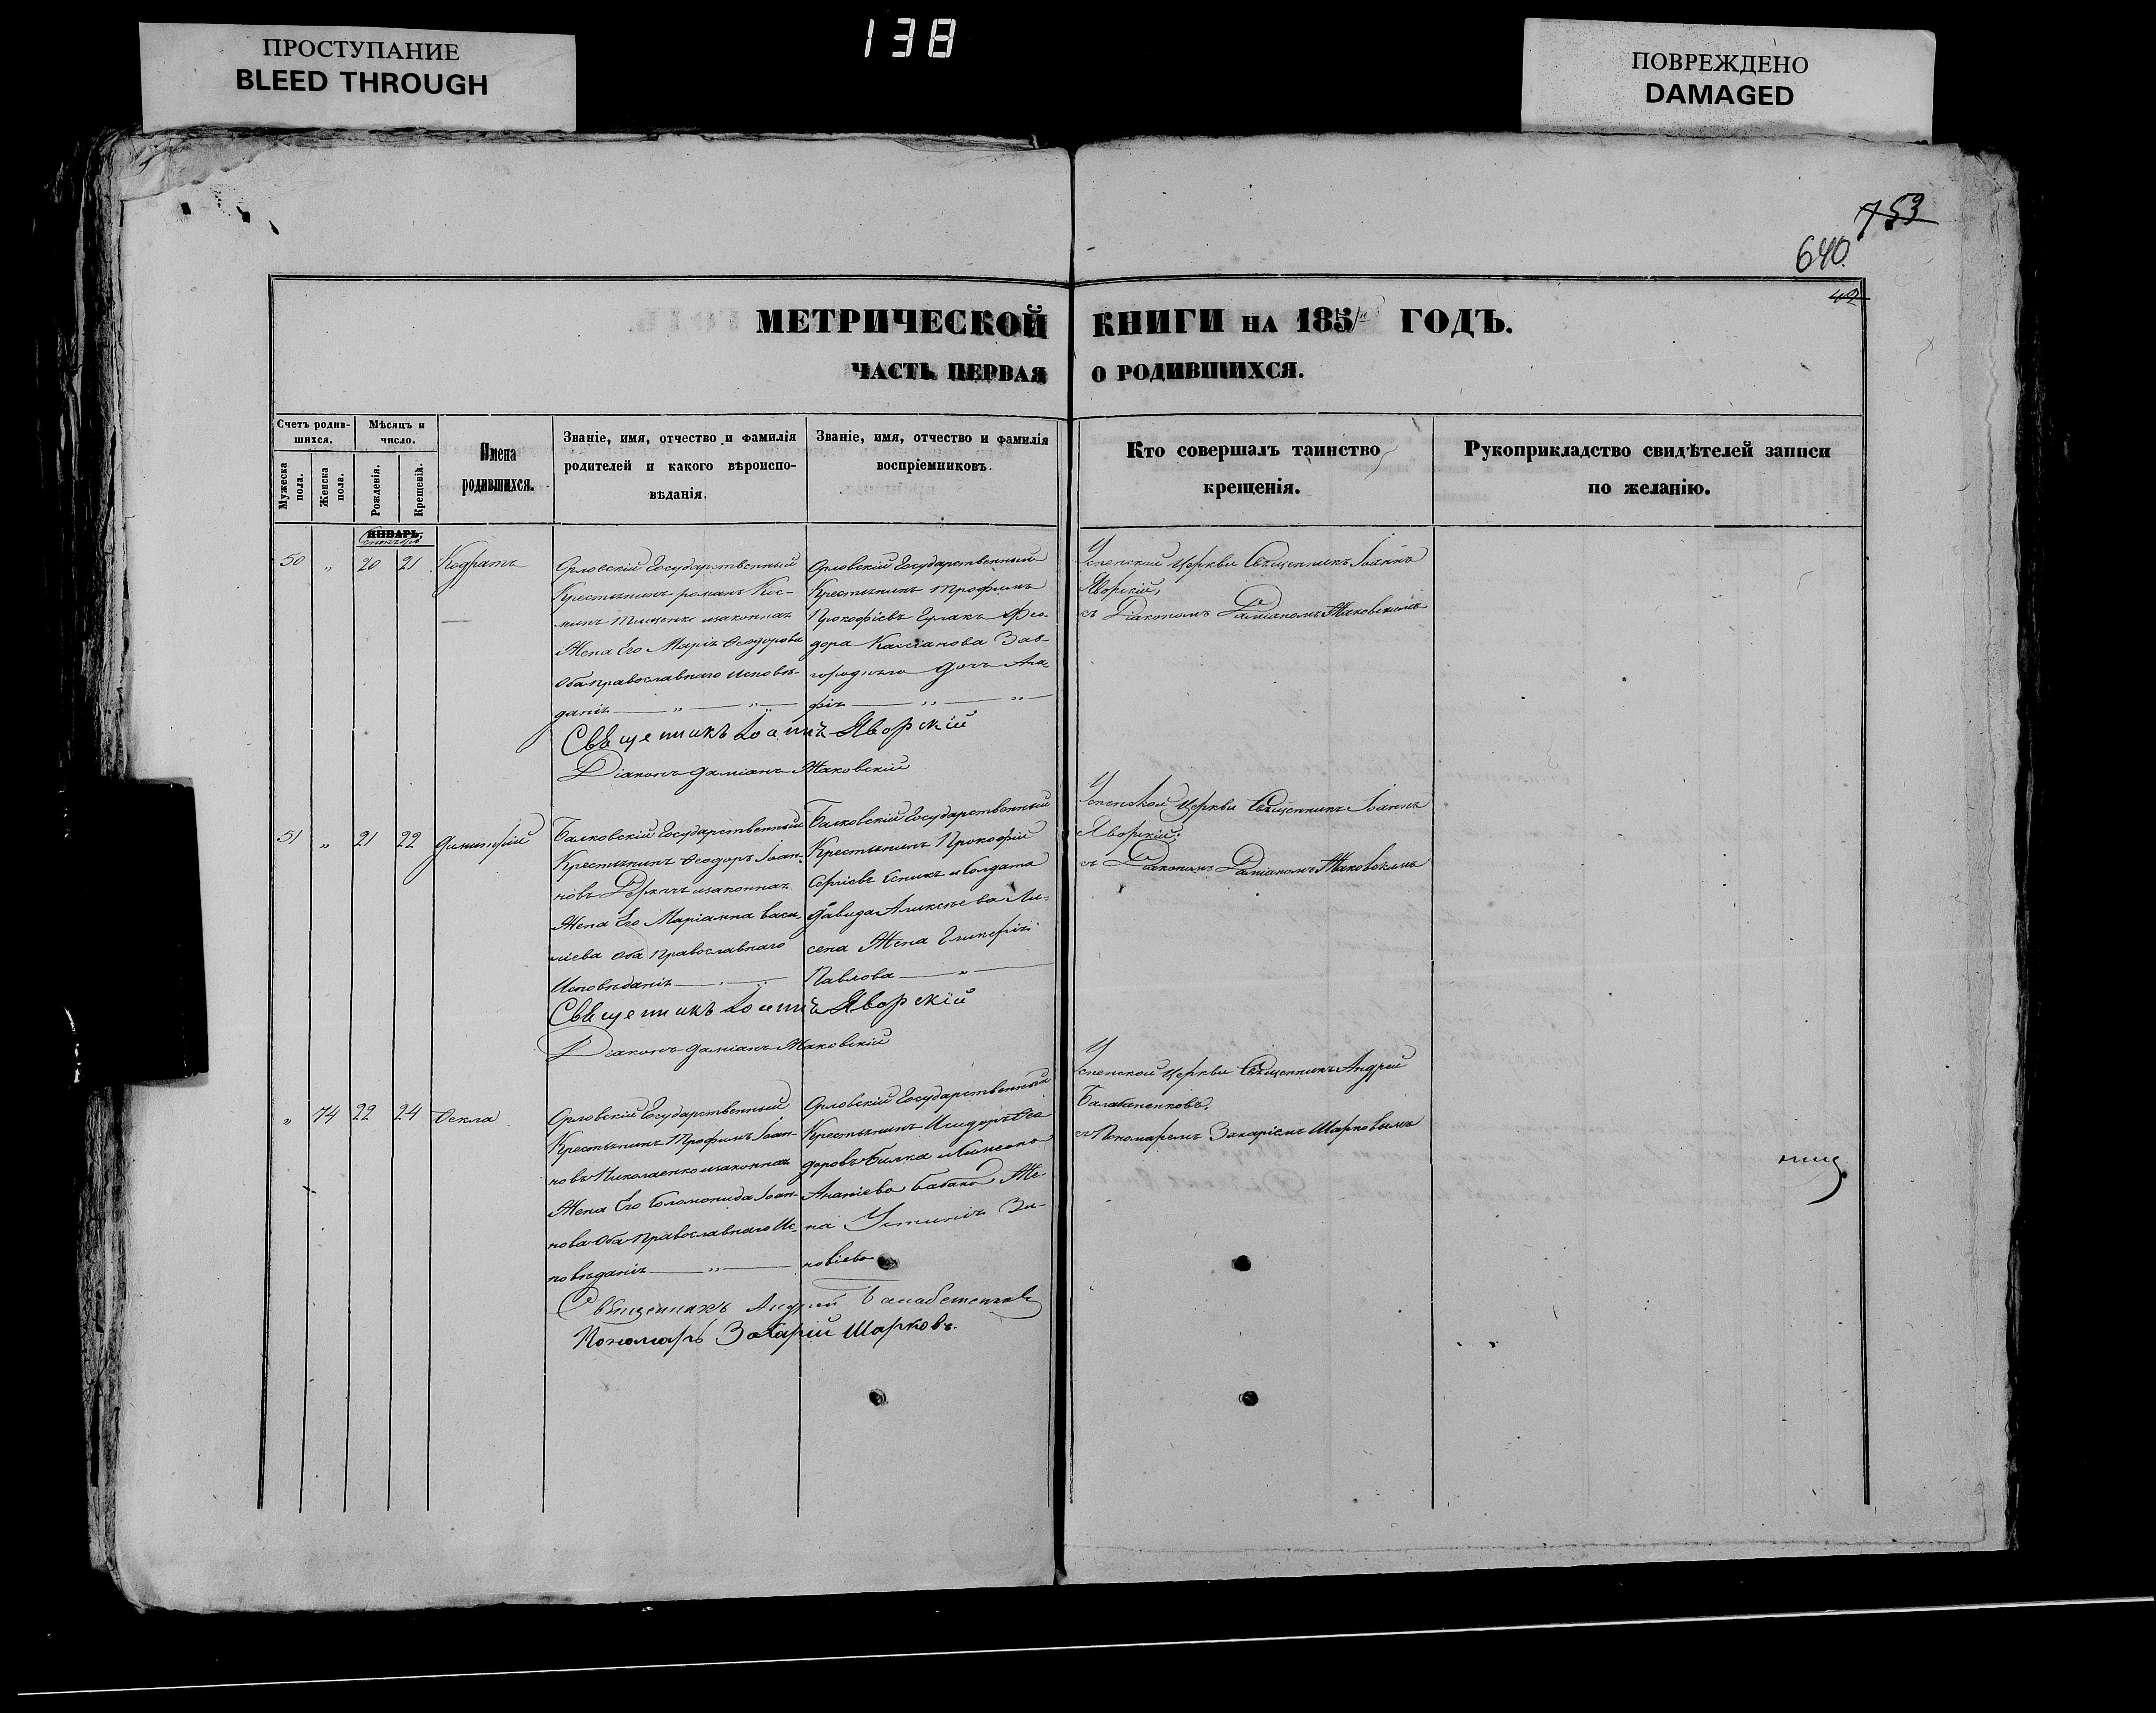 ПРОСТУПАНИЕ
BLEED THROUGH
138
ПОВРЕЖДЕНО
DAMAGED
753
640.
42
МЕТРИЧЕСКОЙ КНИГИ НА 185 ГОДЪ.
ЧАСТЬ ПЕРВАЯ О РОДИВШИХСЯ.
Счетъ родив-
шихся.
Мужеска
пола.
Женска
пола.
Мѣсяцъ и
число.
Рожденія.
Крещенія.
Имена
родившихся.
Званіе, имя, отчество и фамилія
родителей и какого вѣроиспо-
вѣданія.
Званіе, имя, отчество и фамилія
воспріемниковъ.
Кто совершалъ таинство
крещенія.
Рукоприкладство свидѣтелей записи
по желанію.
ЯНВАРЬ.
50 „ 20 21 Кодратъ
Орловскій Государственный
Крестьянинъ романъ Кос-
законная
Жена Его Марія Ѳеодорова
Оба православнаго исповѣ-
данія
Орловскій Государственный
Крестьянинъ Трофимъ
Прокофіевъ Гулакъ
Касіанова Зав-
городняго дочь Ага-
фія
Священникъ Іоаннъ Яворскій
Діаконъ Даміанъ Маковскій
Успенской Церкви Священникъ Іоаннъ
Яворскій,
съ Діакономъ Даміаномъ Маковскимъ
51 „ 21 22 Димитрій
Балковскій Государственный
Крестьянинъ Ѳеодоръ Іоан-
новъ Деркачъ законная
Жена Его Маріамна Васи-
ліева Оба Православнаго
Исповѣданія
Балковскій Государственный
Крестьянинъ Прокофій
Сергіевъ и Солдата
Давида Алексѣева Ли-
сена Жена Гликерія
Павлова
Священникъ Іоаннъ Яворскій
Діаконъ Даміанъ Маковскій
Успенской Церкви Священникъ Іоаннъ
Яворскій.
съ Діакономъ Даміаномъ Маковскимъ
„ 74 22 24 Ѳекла
Орловскій Государственный
Крестьянинъ Трофимъ Іоан-
новъ Николаенко законная
Жена Его Соломонида Іоан-
нова Оба Православнаго Ис-
повѣданія
Орловскій Государственный
Крестьянинъ Исидоръ Ѳео-
доровъ Билка и Симеона
Ананіева Бабака Же-
на Устинія Зи-
новіева
Священникъ Андрей Балабаненковъ
Пономарь Захарій Шарковъ.
Успенской Церкви Священникъ Андрей
Балабаненковъ.
съ Пономаремъ Захаріемъ Шарковымъ